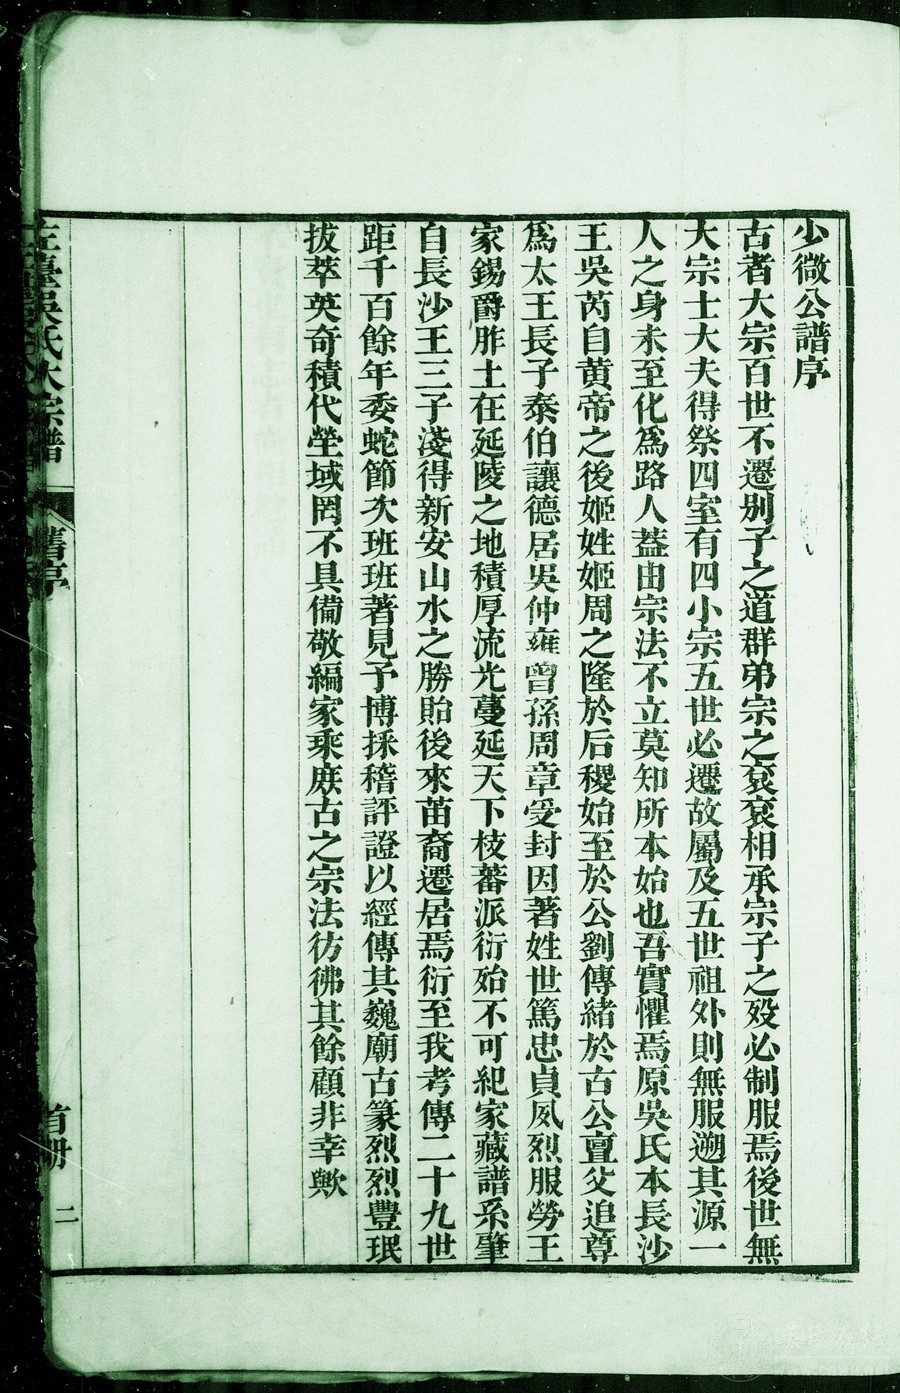 少微公譜序
古者大宗百世不遷别子之道群弟宗之袞袞相承宗子之歿必制服焉後世無
大宗士大夫得祭四室有四小宗五世必遷故屬及五世祖外則無服遡其源一
人之身未至化爲路人蓋由宗法不立莫知所本始也吾實懼焉原吳氏本長沙
王吳芮自黄帝之後姬姓姬周之隆於后稷始至於公劉傳緒於古公亶父追尊
爲太王長子泰伯讓德居吳仲雍曾孫周章受封因著姓世篤忠貞風烈服勞王
家錫爵胙土在延陵之地積厚流光蔓延天下枝蕃派衍殆不可紀家藏譜系肇
自長沙王三子淺得新安山水之勝貽後來苗裔遷居焉衍至我考傳二十九世
距千百餘年委蛇節次班班著見予博採稽評證以經傳其巍廟古篆烈烈豐珉
拔萃英奇積代塋域罔不具備敬編家乘庶古之宗法彷彿其餘顧非幸歟
左臺吳氏大宗譜
舊序
首册
二